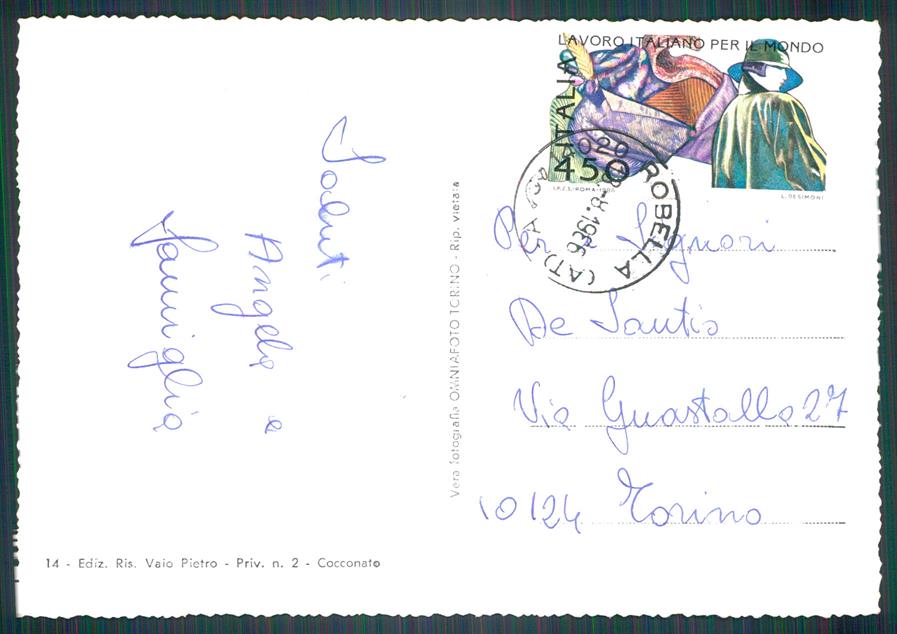 LAVORO ITALIANO PER IL MONDO
ITALIA
450
I.P.Z.S. - ROMA - 1986
L. DESIMONI
ROBELLA (AT)
8.1986
Saluti
Angela e
famiglia
Vera fotografia OMNIAFOTO TORINO - Rip. vietata
Per Signori
De Santis
Via Guastalla 27
10124 Torino
14 - Ediz. Ris. Vaio Pietro - Priv. n. 2 - Cocconato